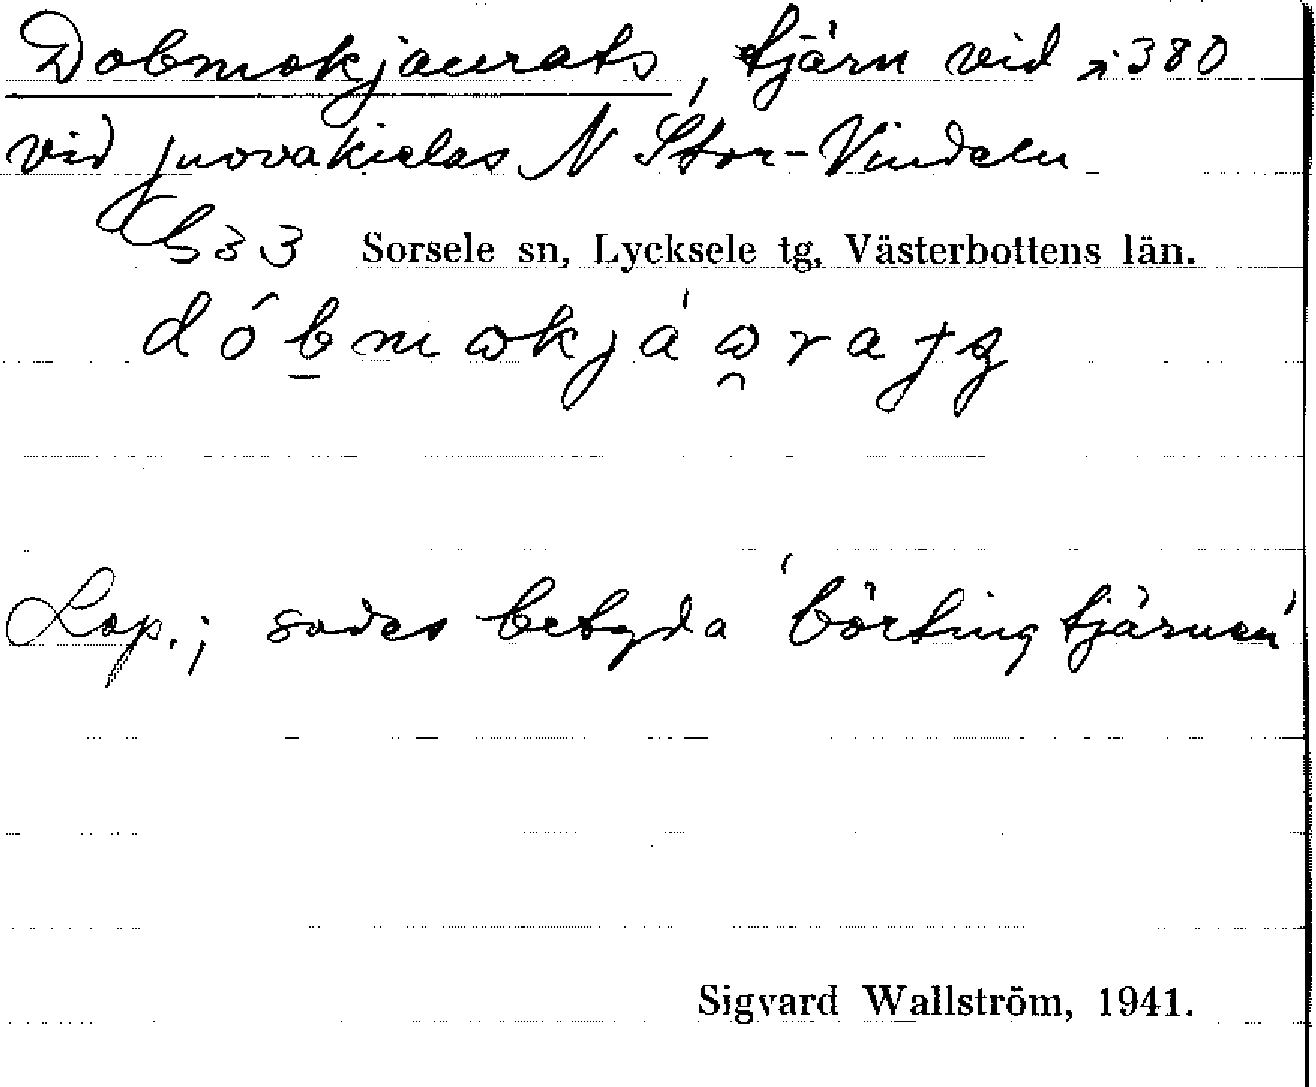 Dobmokjaurats, tjärn vid 380
vid Juovakielas N Stor-Vindeln
33 Sorsele sn, Lycksele tg, Västerbottens län.
Lap.; sades betyda 'börtingtjärnen'
Sigvard Wallström, 1941.